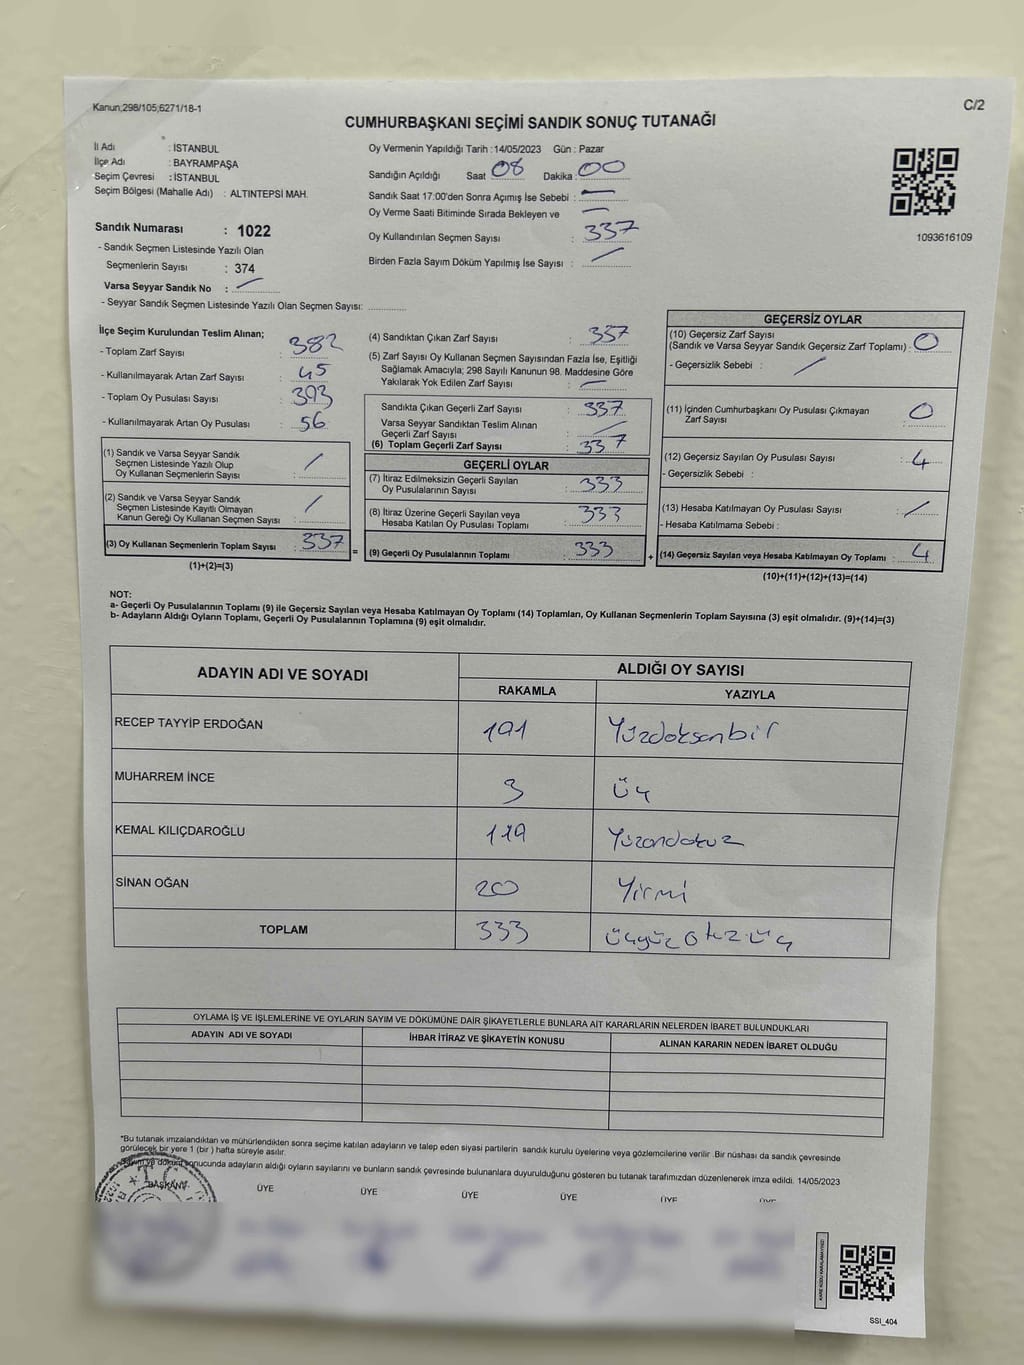 Kanun;298/105;6271/18-1
C/2
CUMHURBAŞKANI SEÇİMİ SANDIK SONUÇ TUTANAĞI
İl Adı : İSTANBUL
İlçe Adı : BAYRAMPAŞA
Seçim Çevresi : İSTANBUL
Seçim Bölgesi (Mahalle Adı) : ALTINTEPSİ MAH.
Sandık Numarası : 1022
- Sandık Seçmen Listesinde Yazılı Olan
Seçmenlerin Sayısı : 374
Varsa Seyyar Sandık No :
- Seyyar Sandık Seçmen Listesinde Yazılı Olan Seçmen Sayısı:
Oy Vermenin Yapıldığı Tarih :14/05/2023 Gün : Pazar
Sandığın Açıldığı Saat 08 Dakika : 00
Sandık Saat 17:00'den Sonra Açımış İse Sebebi :
Oy Verme Saati Bitiminde Sırada Bekleyen ve
Oy Kullandırılan Seçmen Sayısı : 337
Birden Fazla Sayım Döküm Yapılmış İse Sayısı :
1093616109
İlçe Seçim Kurulundan Teslim Alınan;
- Toplam Zarf Sayısı : 382
- Kullanılmayarak Artan Zarf Sayısı : 45
- Toplam Oy Pusulası Sayısı : 393
- Kullanılmayarak Artan Oy Pusulası : 56
(1) Sandık ve Varsa Seyyar Sandık
Seçmen Listesinde Yazılı Olup
Oy Kullanan Seçmenlerin Sayısı : /
(2) Sandık ve Varsa Seyyar Sandık
Seçmen Listesinde Kayıtlı Olmayan
Kanun Gereği Oy Kullanan Seçmen Sayısı : /
(3) Oy Kullanan Seçmenlerin Toplam Sayısı : 337
(1)+(2)=(3)
=
(4) Sandıktan Çıkan Zarf Sayısı : 337
(5) Zarf Sayısı Oy Kullanan Seçmen Sayısından Fazla İse, Eşitliği
Sağlamak Amacıyla; 298 Sayılı Kanunun 98. Maddesine Göre
Yakılarak Yok Edilen Zarf Sayısı :
Sandıkta Çıkan Geçerli Zarf Sayısı : 337
Varsa Seyyar Sandıktan Teslim Alınan
Geçerli Zarf Sayısı : /
(6) Toplam Geçerli Zarf Sayısı : 337
GEÇERLİ OYLAR
(7) İtiraz Edilmeksizin Geçerli Sayılan
Oy Pusulalarının Sayısı : 333
(8) İtiraz Üzerine Geçerli Sayılan veya
Hesaba Katılan Oy Pusulası Toplamı : 333
(9) Geçerli Oy Pusulalarının Toplamı : 333
+
GEÇERSİZ OYLAR
(10) Geçersiz Zarf Sayısı
(Sandık ve Varsa Seyyar Sandık Geçersiz Zarf Toplamı) : 0
- Geçersizlik Sebebi : /
(11) İçinden Cumhurbaşkanı Oy Pusulası Çıkmayan
Zarf Sayısı : 0
(12) Geçersiz Sayılan Oy Pusulası Sayısı : 4
- Geçersizlik Sebebi :
(13) Hesaba Katılmayan Oy Pusulası Sayısı : /
- Hesaba Katılmama Sebebi :
(14) Geçersiz Sayılan veya Hesaba Katılmayan Oy Toplamı : 4
(10)+(11)+(12)+(13)=(14)
NOT:
a- Geçerli Oy Pusulalarının Toplamı (9) ile Geçersiz Sayılan veya Hesaba Katılmayan Oy Toplamı (14) Toplamları, Oy Kullanan Seçmenlerin Toplam Sayısına (3) eşit olmalıdır. (9)+(14)=(3)
b- Adayların Aldığı Oyların Toplamı, Geçerli Oy Pusulalarının Toplamına (9) eşit olmalıdır.
ADAYIN ADI VE SOYADI
ALDIĞI OY SAYISI
RAKAMLA
YAZIYLA
RECEP TAYYİP ERDOĞAN 191 Yüzdoksanbir
MUHARREM İNCE 3 Üç
KEMAL KILIÇDAROĞLU 119 Yüzondokuz
SİNAN OĞAN 20 Yirmi
TOPLAM 333 üçyüzotuzüç
OYLAMA İŞ VE İŞLEMLERİNE VE OYLARIN SAYIM VE DÖKÜMÜNE DAİR ŞİKAYETLERLE BUNLARA AİT KARARLARIN NELERDEN İBARET BULUNDUKLARI
ADAYIN ADI VE SOYADI
İHBAR İTİRAZ VE ŞİKAYETİN KONUSU
ALINAN KARARIN NEDEN İBARET OLDUĞU
*Bu tutanak imzalandıktan ve mühürlendikten sonra seçime katılan adayların ve talep eden siyasi partilerin sandık kurulu üyelerine veya gözlemcilerine verilir. Bir nüshası da sandık çevresinde
görülecek bir yere 1 (bir ) hafta süreyle asılır.
Sayım ve döküm sonucunda adayların aldığı oyların sayılarını ve bunların sandık çevresinde bulunanlara duyurulduğunu gösteren bu tutanak tarafımızdan düzenlenerek imza edildi. 14/05/2023
BAŞKAN ÜYE ÜYE ÜYE ÜYE ÜYE ÜYE
T.C.
SSI_404